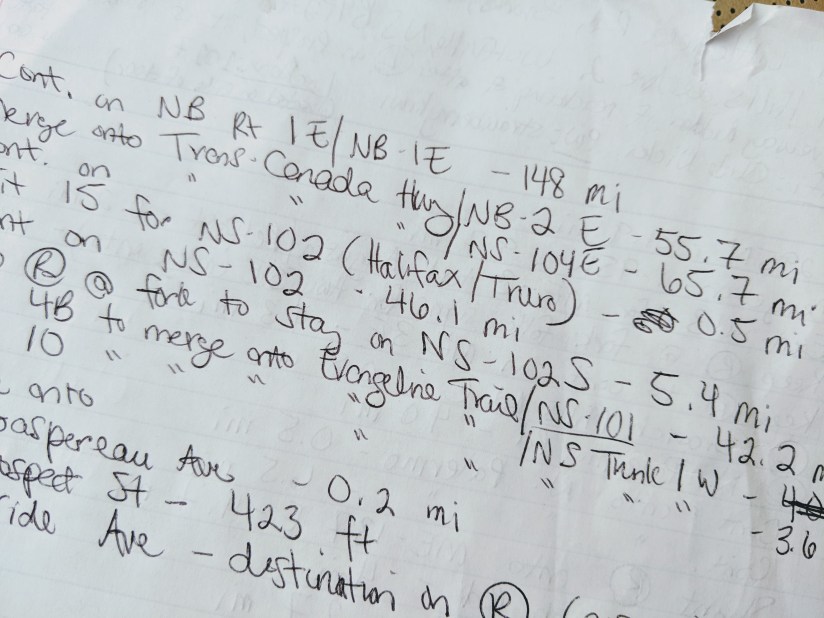 Cont. on NB Rt 1E/NB-1E - 148 mi
erge onto Trans-Canada Hwy/NB-2 E - 55.7 mi
ont. on " " " /NS-104E - 65.7 mi
it 15 for NS-102 (Halifax/Truro) - 0.5 mi
nt on NS-102 - 46.1 mi
R @ fork to stay on NS-102S - 5.4 mi
4B to merge onto Evangeline Trail/NS-101 - 42.2 m
10 " " " " " /NS Trunk 1 W - 3.6
onto
aspereau Ave - 0.2 mi
ospect St - 423 ft
ride Ave - destination on R